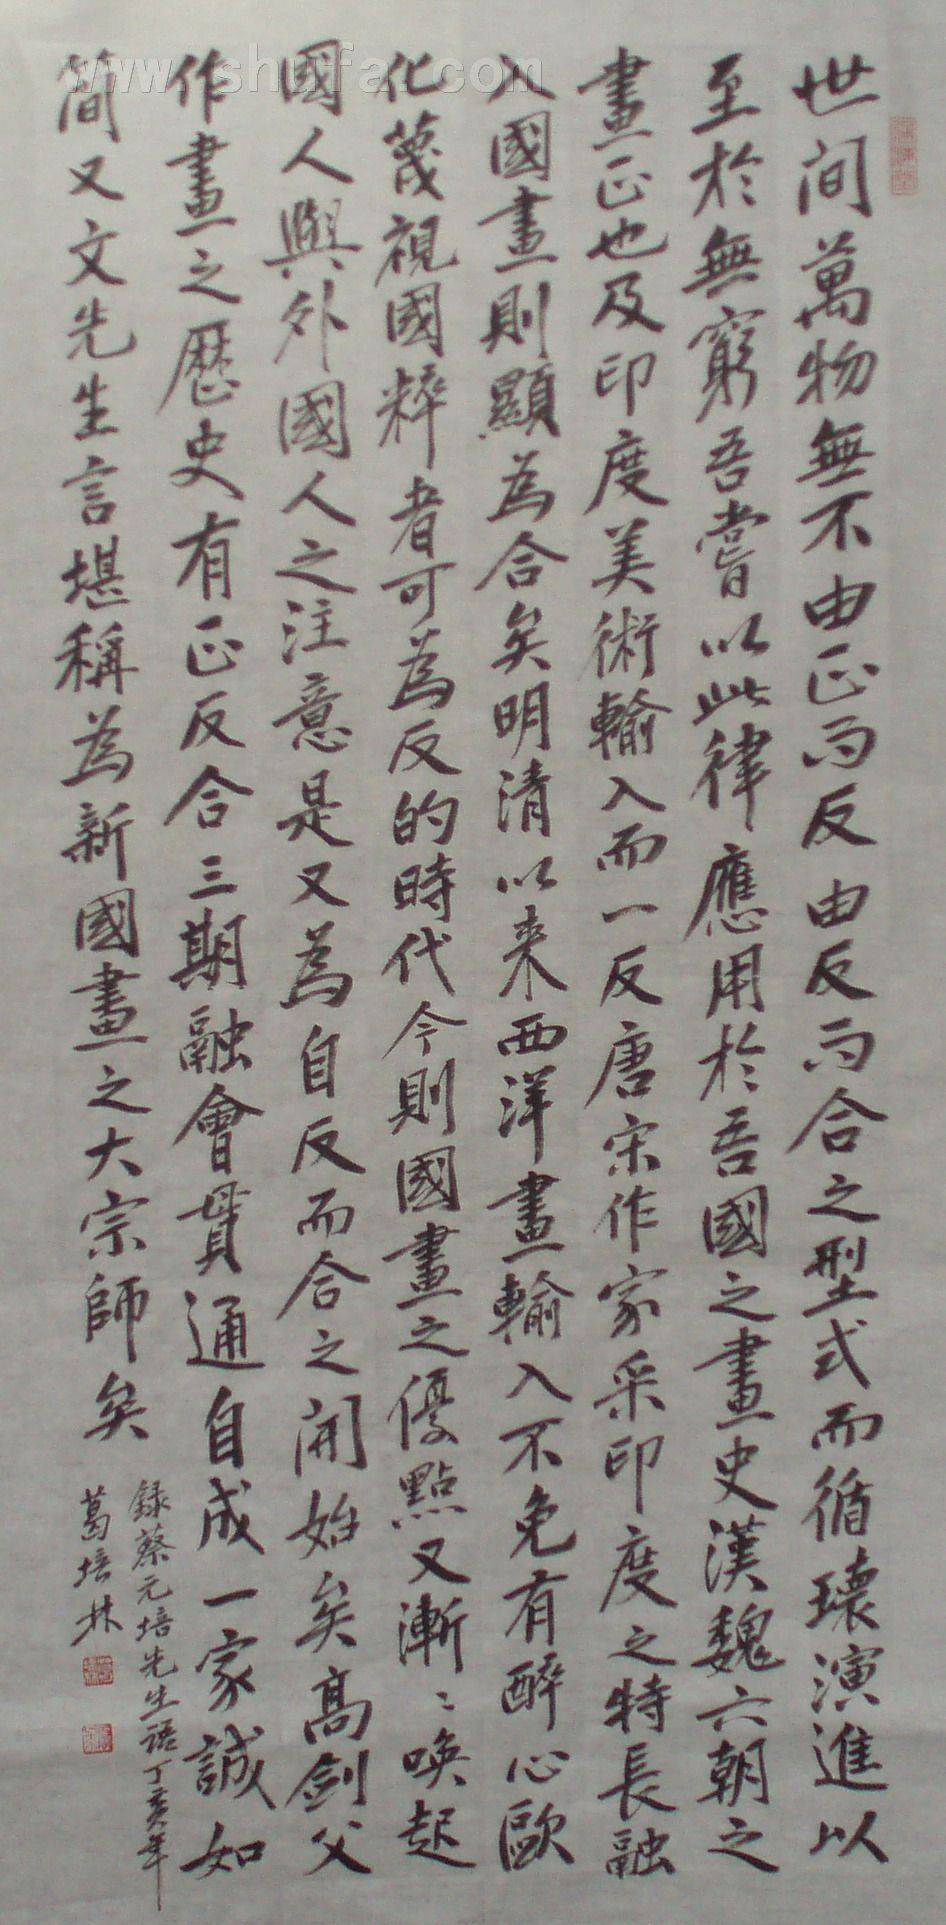 世间萬物無不由正而反由反而合之型式而循環演進以
至於無窮吾嘗以此律應用於吾國之畫史漢魏六朝之
畫正也及印度美術輸入而一反唐宋作家采印度之特長融
入國畫則顯為合矣明清以来西洋畫輸入不免有醉心歐
化蔑視國粹者可為反的時代今則國畫之優點又漸〻唤起
國人與外國人之注意是又為自反而合之開始矣高劍父
作畫之歷史有正反合三期融會貫通自成一家誠如
简又文先生言堪稱為新國畫之大宗師矣
録蔡元培先生語丁亥年
葛培林
www.shufa.com